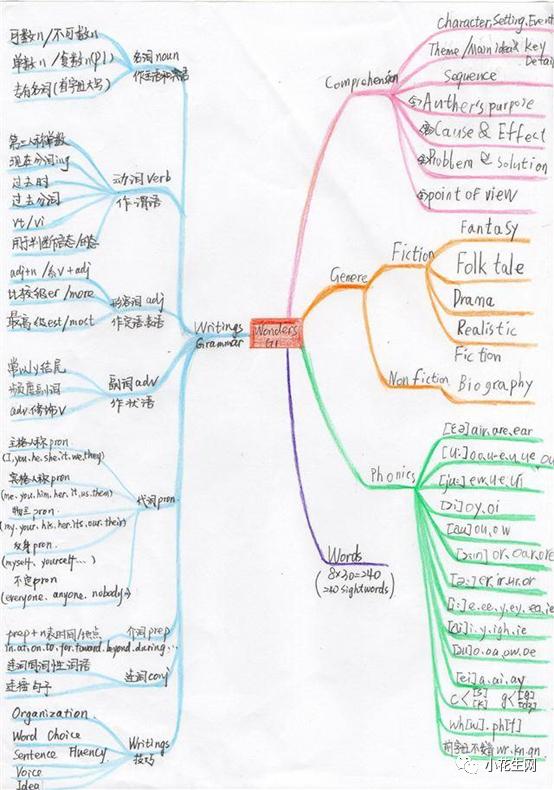 Wonders
G1
Comprehension
Character, Setting, Event
Theme /Main idea& key
Detail
Sequence
Auther's purpose
Cause & Effect
Problem & solution
point of view
Genere
Fiction
Fantasy
Folk tale
Drama
Realistic
Fiction
Non fiction
Biography
Phonics
air.are.ear
oy.oi
ou.ow
er.ir.ur.or
[i:] e.ee.y.ey.ea.ie
i.y.igh.ie
o.oa.ow.oe
[ei] a.ai.ay
wr.kn.gn
Words
(8x30=240
240 sightwords)
Writings
Grammar
名词 noun
可数n/不可数n
单数n/复数n(pl)
专有名词(首字母大写)
动词 verb
作谓语
第三人称单数
现在分词ing
过去时
过去分词
vt/vi
形容词 adj
作定语表语
adj+n /系v+adj
比较级er/more
最高级est/most
副词adv
作状语
常以ly结尾
频度副词
adv.修饰v
代词pron.
主格人称pron
(I,you.he.she.it.we.they)
宾格人称pron
(me.you.him.her.it.us.them)
物主pron.
(my.your.his.her.its.our.their)
反身pron.
(myself, yourself...)
不定pron
(everyone. anyone. nobody...)
介词prep
prep+n表时间/地点
in.at.on.to.for.toward.beyond.during...
连词conj
连词同词性词语
连接句子
Writings
技巧
Organization.
Word Choice
Sentence Fluency.
Voice
Idea
小花生网